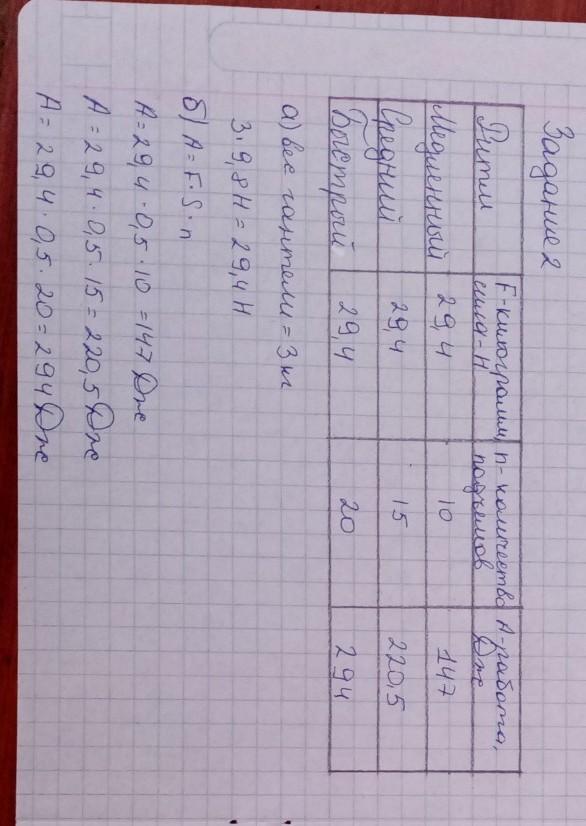 Задание 2
Ритм F-килограмм, сила-Н n-количество подъёмов А-работа, Дж
Медленный 29,4 10 147
Средний 29,4 15 220,5
Быстрый 29,4 20 294
а) вес гантели = 3 кг
3·9,8Н = 29,4Н
б) А = F·S·n
А = 29,4·0,5·10 = 147 Дж
А = 29,4·0,5·15 = 220,5 Дж
А = 29,4·0,5·20 = 294 Дж